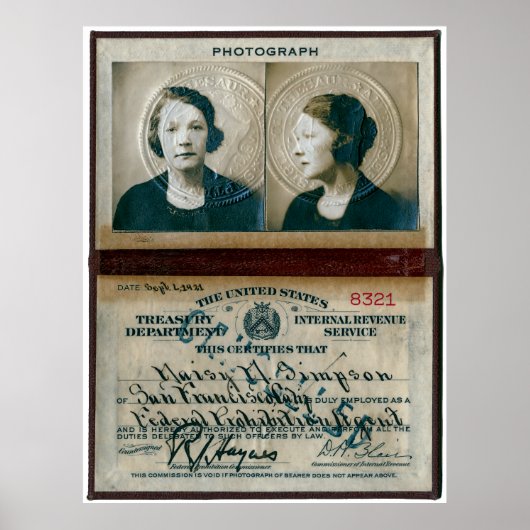 PHOTOGRAPH
DATE Sept. 1, 1921
THE UNITED STATES
8321
TREASURY DEPARTMENT
INTERNAL REVENUE SERVICE
THIS CERTIFIES THAT
Daisy M. Simpson
of San Francisco, Cal. IS DULY EMPLOYED AS A
Federal Prohibition Agent
AND IS HEREBY AUTHORIZED TO EXECUTE AND PERFORM ALL THE
DUTIES DELEGATED TO SUCH OFFICERS BY LAW.
Countersigned
R. A. Haynes
D. H. Blair
Federal Prohibition Commissioner.
Commissioner of Internal Revenue.
THIS COMMISSION IS VOID IF PHOTOGRAPH OF BEARER DOES NOT APPEAR ABOVE.